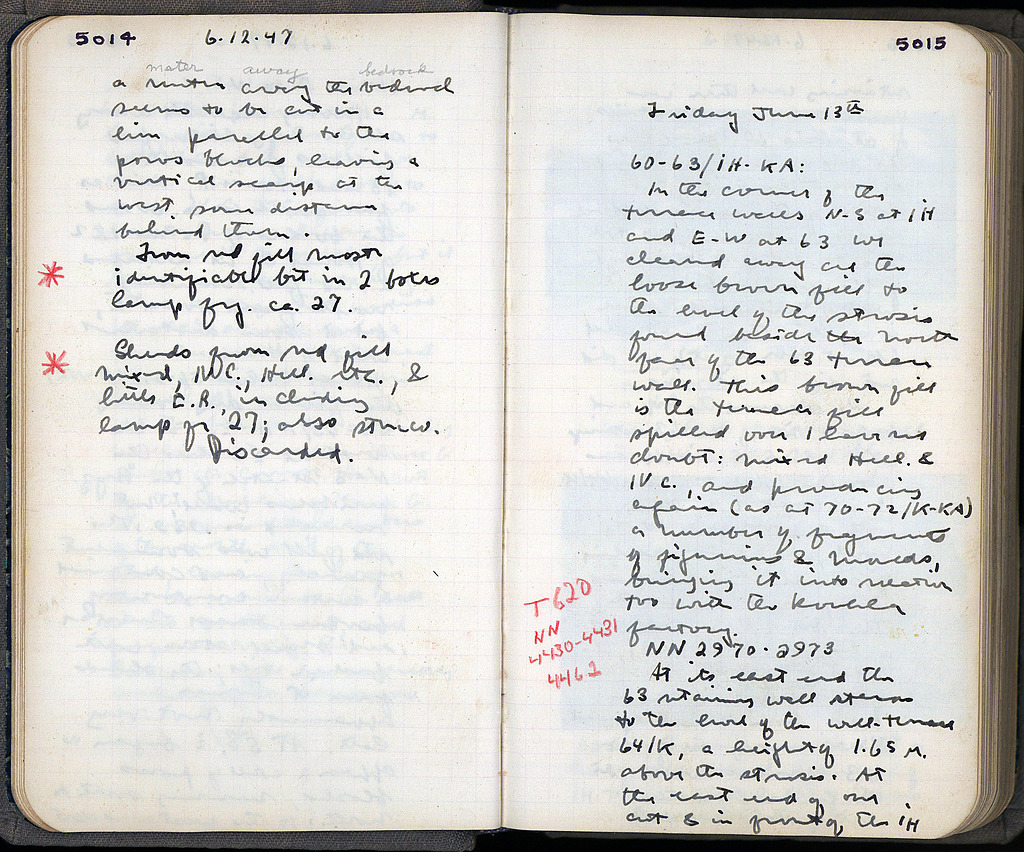 5014 6·12·47
meter away bedrock
a meter away the bedrock
seems to be cut in a
line parallel to the
poros blocks, leaving a
vertical scarp at the
west some distance
behind them.
From red fill most
identifiable bit in 2 boxes
lamp frg. ca. 27
Sherds from red fill
mixed, IV C., Hell. etc., &
little E.R., including
lamp fr. 27; also stucco.
Discarded.
5015
Friday June 13th
60-63/IH-KA:
In the corner of the
terrace walls N-S at IH
and E-W at 63 we
cleared away all the
loose brown fill to
the level of the strosis
found beside the north
face of the 63 terrace
wall. This brown fill
is the terrace fill
spilled over
doubt: mixed Hell. &
IV c., and producing
again (as at 70-72/K-KA)
a number of fragments
of figurines & moulds,
bringing it into relation
too with the koroplast
factory.
T 620
NN
4430-4431
4462
NN 2970-2973
At its east end the
63 retaining wall stands
to the level of the wall-terrace
64/K, a height of 1.65 M.
above the strosis. At
the east end of our
cut & in front of the IH